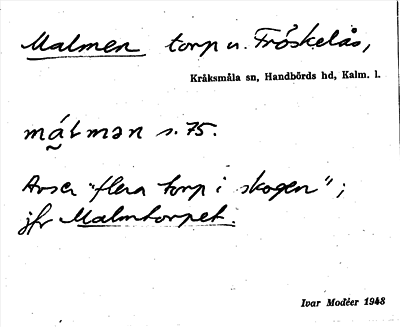 Malmen torp u. Fröskelås,
Kråksmåla sn, Handbörds hd, Kalm. l.
má̰lmən s. 75.
Avser "flera torp i skogen";
jfr Malmtorpet.
Ivar Modéer 1943